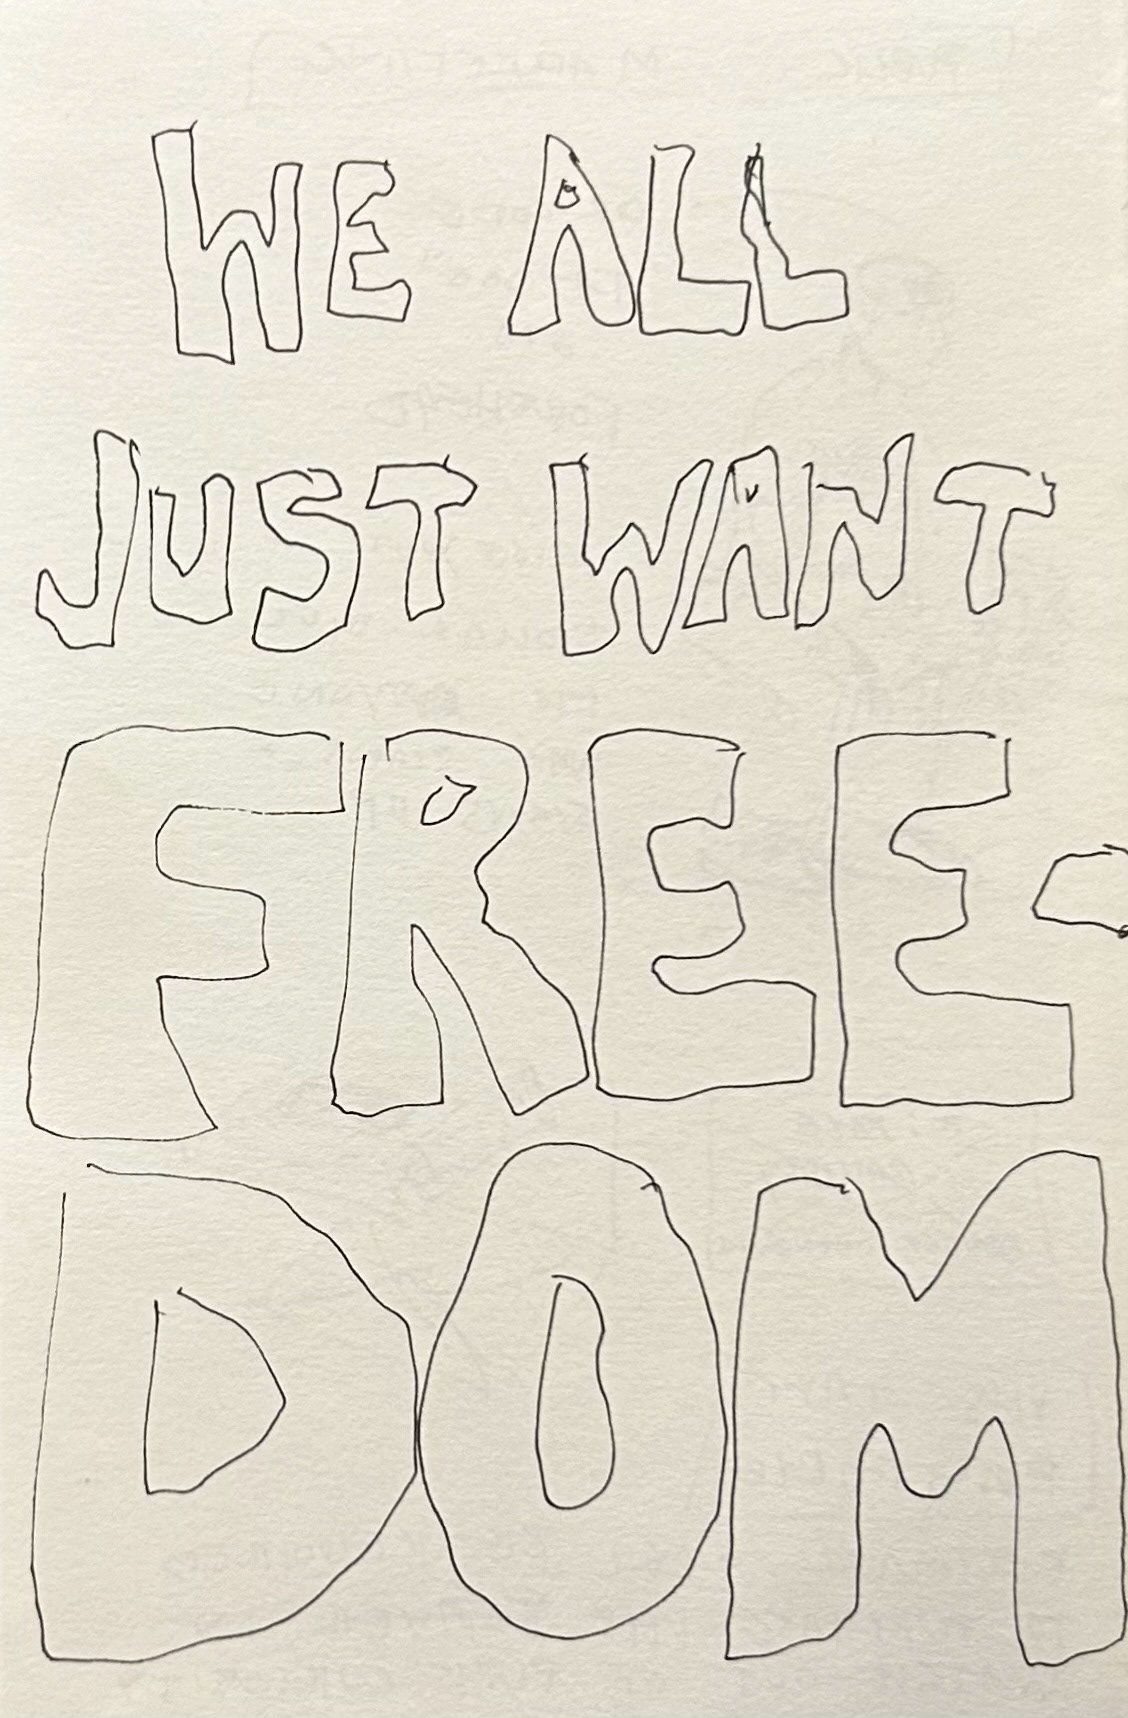 WE ALL
JUST WANT
FREE-
DOM